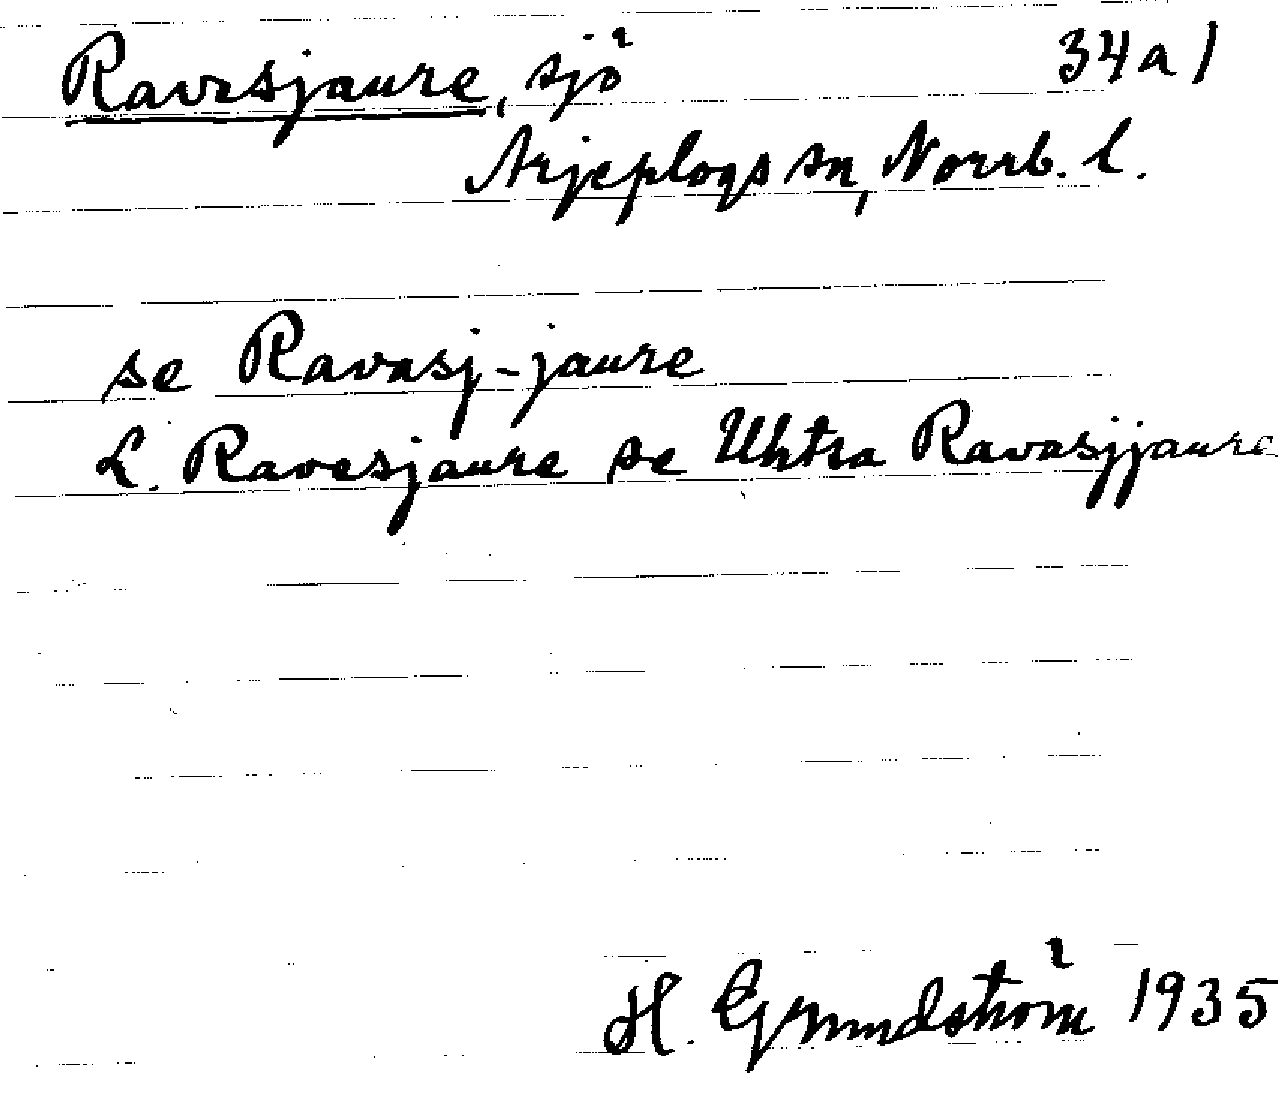 Ravesjaure, sjö 34a1
Arjeplogs sn, Norrb. l.
se Ravasj-jaure
L. Ravesjaure se Uhtsa Ravasjjaure
H. Grundström 1935